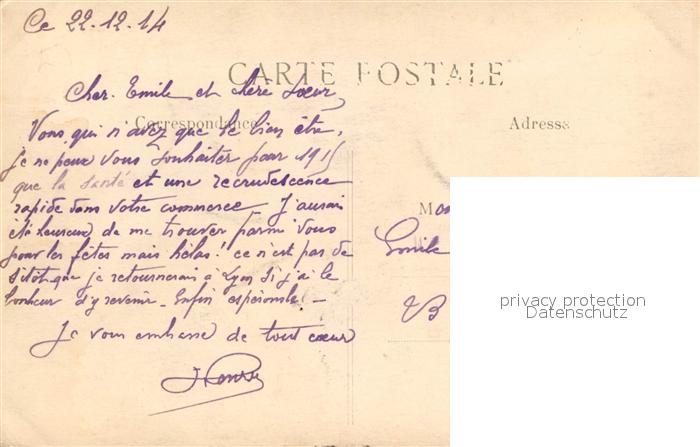 Ce 22.12.14
CARTE POSTALE
Cher Emile et chère Sœur
Correspondance
Adresse
Vous qui n'avez que le bien être,
je ne peux vous souhaiter pour 1915
que la santé et une recrudescence
rapide dans votre commerce J'aurais
été heureux de me trouver parmi vous
pour les fêtes mais hélas! ce n'est pas de
sitôt que je retournerai à Lyon si j'ai le
bonheur d'y revenir - Enfin espérons le! -
Je vous embrasse de tout cœur
M
Emile
privacy protection
Datenschutz